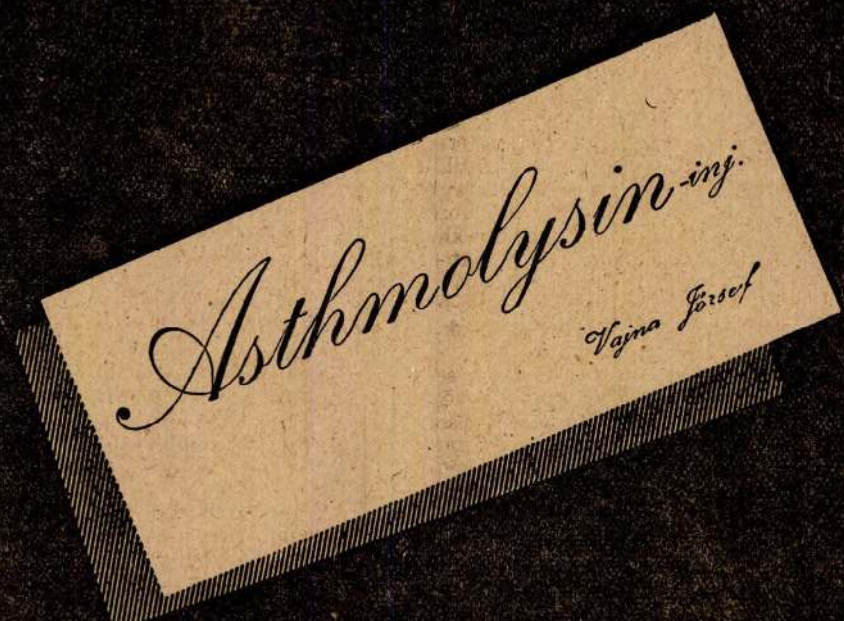 Asthmolysin-inj.
Vajna József